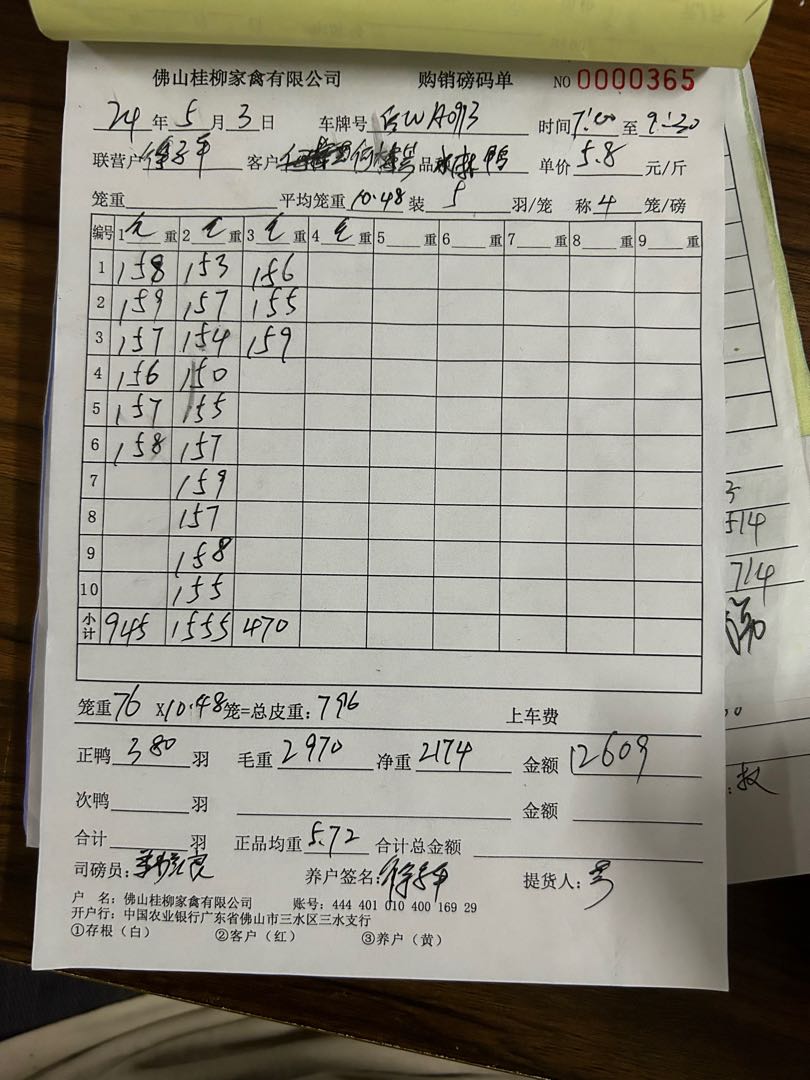 佛山桂柳家禽有限公司 购销磅码单 NO 0000365
24 年 5 月 3 日 车牌号 WA0913 时间 7:00 至 9:30
联营户 客户 品 鸭 单价 5.8 元/斤
笼重 平均笼重 10.48 装 5 羽/笼 称 4 笼/磅
编号 1 毛 重 2 毛 重 3 毛 重 4 毛 重 5 重 6 重 7 重 8 重 9 重
1 158 153 156
2 159 157 155
3 157 154 159
4 156 150
5 157 155
6 158 157
7 159
8 157
9 158
10 155
小计 945 1555 470
笼重 76 X10.48 笼=总皮重: 796 上车费
正鸭 380 羽 毛重 2970 净重 2174 金额 12609
次鸭 羽 金额
合计 羽 正品均重 5.72 合计总金额
司磅员: 养户签名: 提货人:
户 名: 佛山桂柳家禽有限公司 账号: 444 401 010 400 169 29
开户行: 中国农业银行广东省佛山市三水区三水支行
①存根（白） ②客户（红） ③养户（黄）
514
714